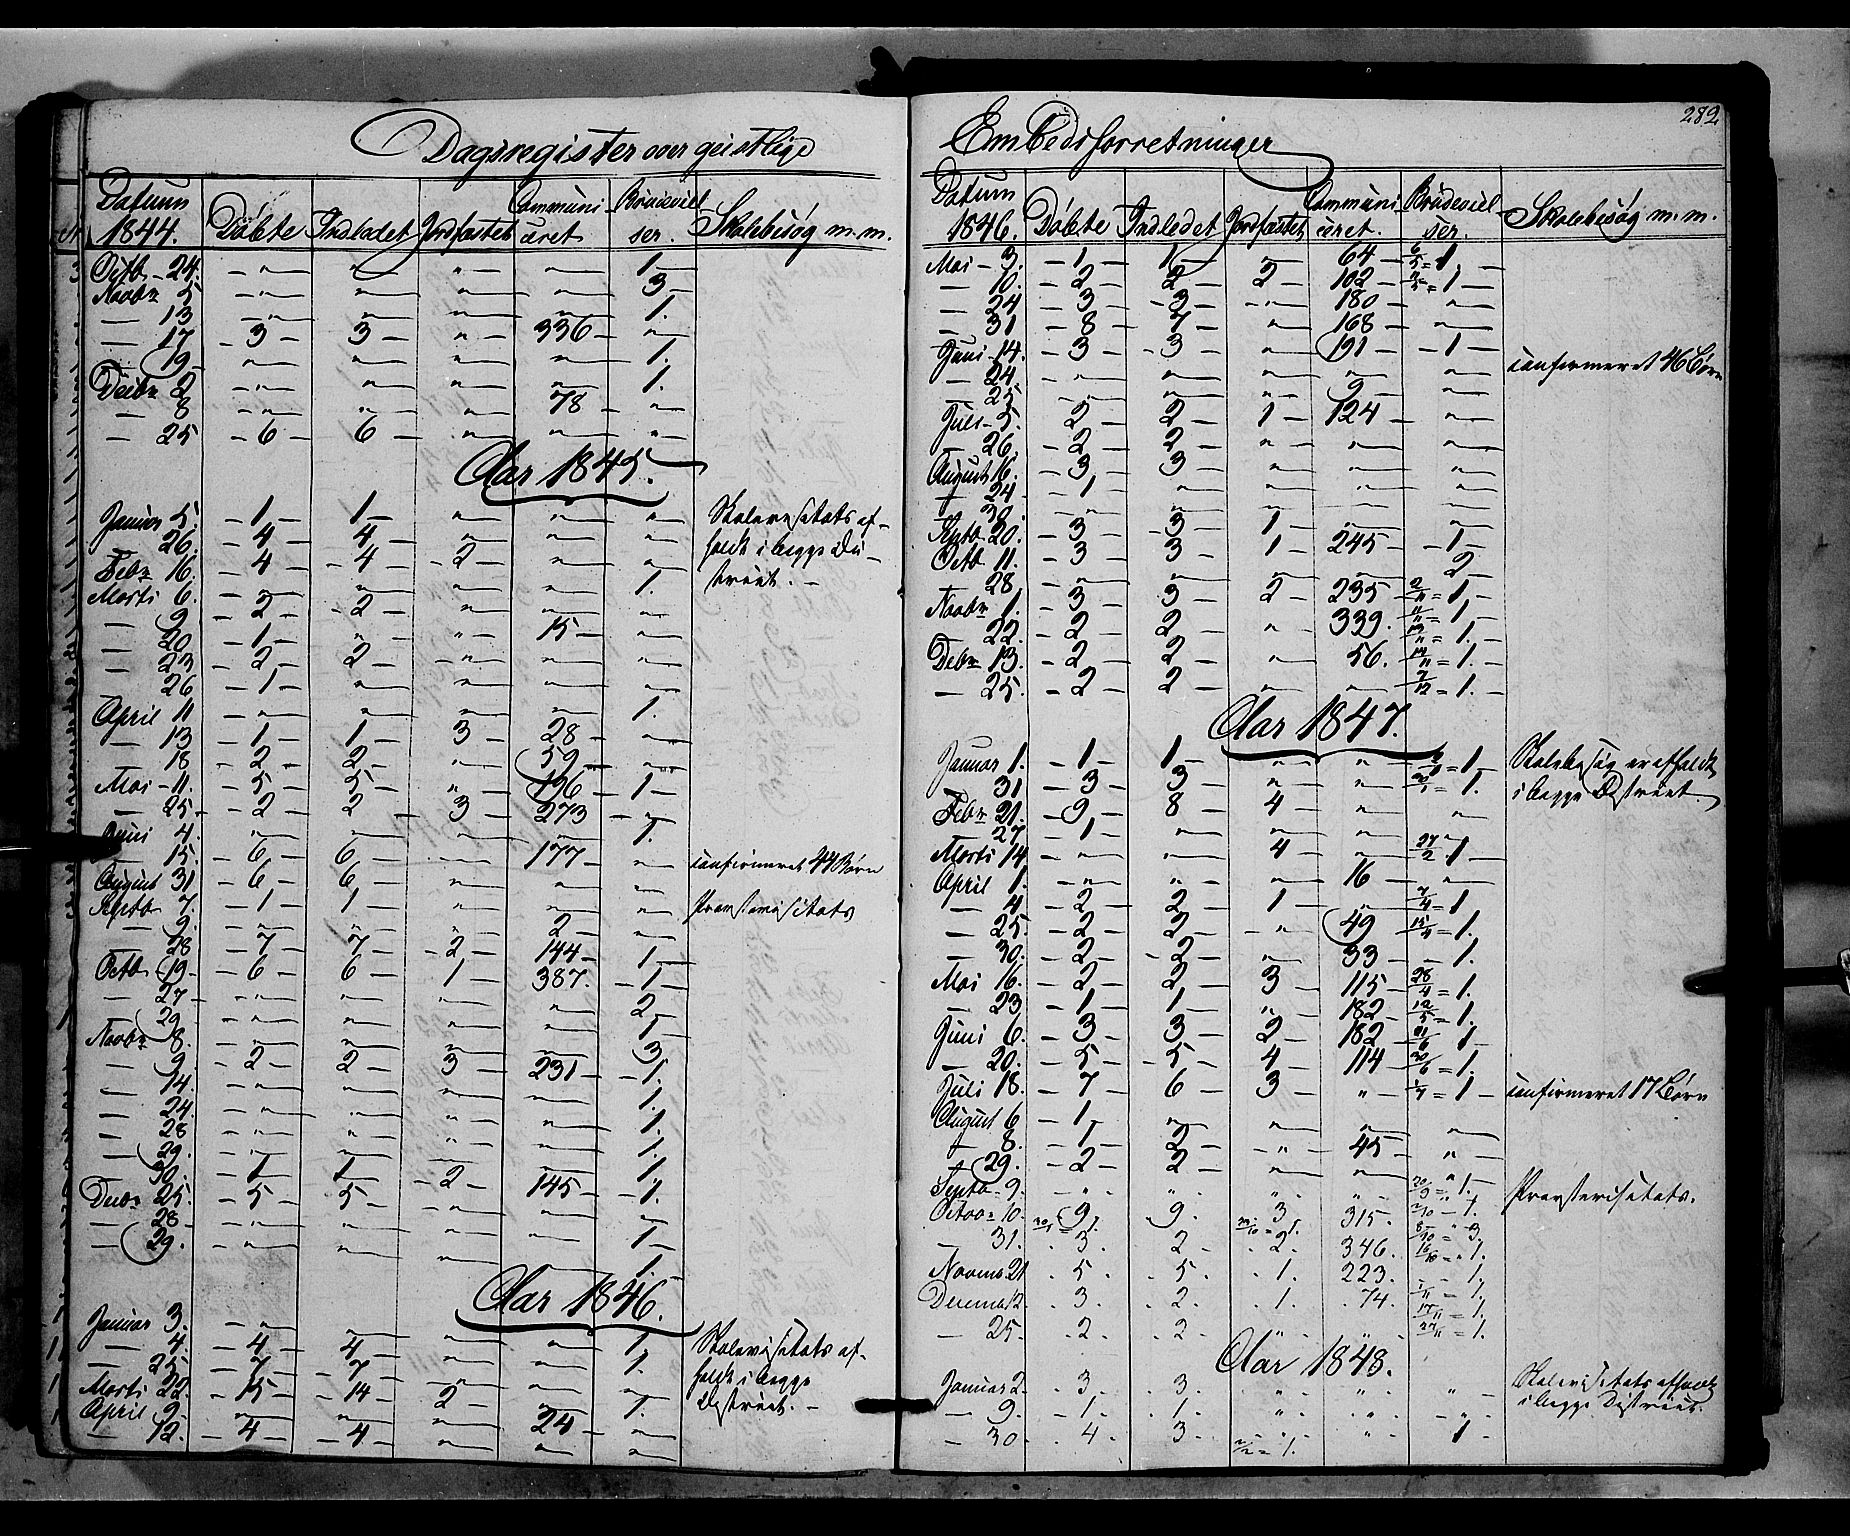 282
Dagsregister over geistlige
Datum 1844. Döbte Indledet Jordfæstet Communiceret Brudevielser. Skolebesøg m. m.
Octb - 24. - " - " " - " - 1 -
Novbr 5 - " - " " - " - 3 -
— 13 - " - " " - " - 1.
— 17 - 3 - 3 - " - 336 - "
— 19 - " - " " - " - 1.
Decbr 2 - " - " " - " - 1.
— 8 - " - " - " - 78 - "
— 25 - 6 - 6 - " - " - "
Aar 1845.
Januar 5. - 1 - 1 - " " " Skolevisitats af-
26. - 4 - 4 - " " " holdt i begge Di-
Febr 16. - 4 - - 4 - - 2 - " " strict. -
Marts 6. - " - " " " 1.
— 9 - 2 - - 2 - " " "
— 20 - 1 - " " - 15 - "
— 23 - 2 - 2 - - " - " "
— 26 - 1 - " " " "
April 11 - " - " " " 1.
— 13 - 1 - 1 - 3 - 28 - "
— 18 - 2 - 2 - " - 59 - "
Mai - 11. - 5 - 5 - " - 196 - 1 -
— 25 - - 2 - 2 - 3 - 273 - "
Juni 4. " " " " 1.
— 15. - 6 - 6 - " 177 - " confirmeret 44 Børn
August 31 - 6 - 6 - " " "
Septb 7. - 1 - 1 - " " " Provstevisitats
— 9. " " " 2 - "
— 28 - 7 - 7 - - 2 - 144 - 1 -
Octb 19 - - 6 - 6 - 1 - 387. - 1 -
— 27 - " - " " " 2 -
— 29 - " - " " " 1 -
Novbr 8. - " - " " " 3.
— 9 - 2 - 2 - 3 - 231 - - 1.
— 14. - " - " " " 1.
— 24. - " - " " " 1.
— 28 - " - " " " 1.
— 29. - " - " " " 1.
— 30. - 1 - 1 - - 2 - 145 - - 1.
Decbr 25. - 5 - - 5 - " " "
— 28 - - " - " " " 1 -
— 29. - " - " " " 1.
Aar 1846.
Januar 3. - " - " " " 1.
— 4. - 4 - 4 - " " " Skolevisitats af-
— 25 - 7 - - 7 - " " 1. holdt i begge
Marts 22. - 15 - - 14 - 2 - " " District. -
April 9 " " " 24 - "
— 12. - 4 - - 4 - " " "
Embedsforretninger
Datum 1846. Döbte Indledet Jordfæstet Communiceret. Brudevielser. Skolebesøg m. m.
Mai - 3. - 1 - 1 - " 64 - 6/5 = 1. -
— 10. - 2 - 2 - 2 - 102 - = 1 -
— 24 - 3 - - 3 - - " - 180 - "
— 31 - 8 - 7 - " 168 - "
Juni - 14. - 3 - - 3 - " 191 - - 1 - confirmeret 46 Børn
— 24. - " " " " "
— 25 - " " " 9 - "
Juli - 5. - 2 - 2 - 1 - 124 - "
— 26. - 2 - 2 - " " "
August 16. - 3 - 3 - " " "
— 24 - 1 - " " " "
— 30. " " " "
Septb 20. - 3 - - 3 - 1 - " - 1 -
Octb 11. - 3 - 3 - 1 - 245 - - 1 -
— 28 - " " " " 2 -
Novbr 1. - 3 - 3 - 2 - 235 2/11 = 1. -
— 22. - 2 - 2 - " - 339. 11/11 = 1 -
Debr 13. - 2 - 2 - " 56. 13/11 = 1. -
— 25. - 2 - 2 - " " 7/12 = 1. -
Aar 1847.
Januar 1. - 1 - 1 - " " = 1 - Skolebesøg er afholdt
31 - 3 - 3 - " " = 1. i begge District.
Febr 21. - 9 - 8 - 4 - " "
— 27 - 1 - " " " "
Marts 14 - " - " 4 - " 27/2 = 1 -
April 1. - " - " " 16 - "
— 4 - 2 - 2 - 1 - " 7/4 = 1
— 25. - 2 - 2 - - " 49 15/4 = 1.
— 30. - 2 - - 2 - " 33 - - 1.
Mai 16. - 2 - 2 - 3 - 115 - 28/4 = 1.
— 23 - 1 - 1 - " - 182 - 12/5 = 1.
Juni 6. - 3 - 3 - 2 - 182 - 1 -
— 20. - 5 - - 5 - 4 - 114 - 20/6 = 1.
Juli 18. - 7 - 6 - 3 - " - = 1 - confirmeret 17 Børn
August 6 - 1 - " " " "
— 8. - 1 - 2 - - " - 45 - "
— 29. - 2 - 2 - " " "
Septb - 9. - " . " . " . " . = 1. - Provstevisitats.
Octobr 10. 9. 9. 3 315. - 1.
— 31. . 3. 2 - . 2. 346. 16/10 = . 1.
Novemb 21 . 5. . 5. . 1. 223. - 1.
Decemb 12. . 3. . 2. . 1. . 74. = 1.
— 25. . 2. . 2. " . " . = 1.
Aar 1848.
Januar 2. . 3. . 3. " . " . " - Skolevisitats afholdt
— 9. . 1. . 1. " . " . - " . i begge District.
— 30. . 4. 3. = 1. " . 1 -